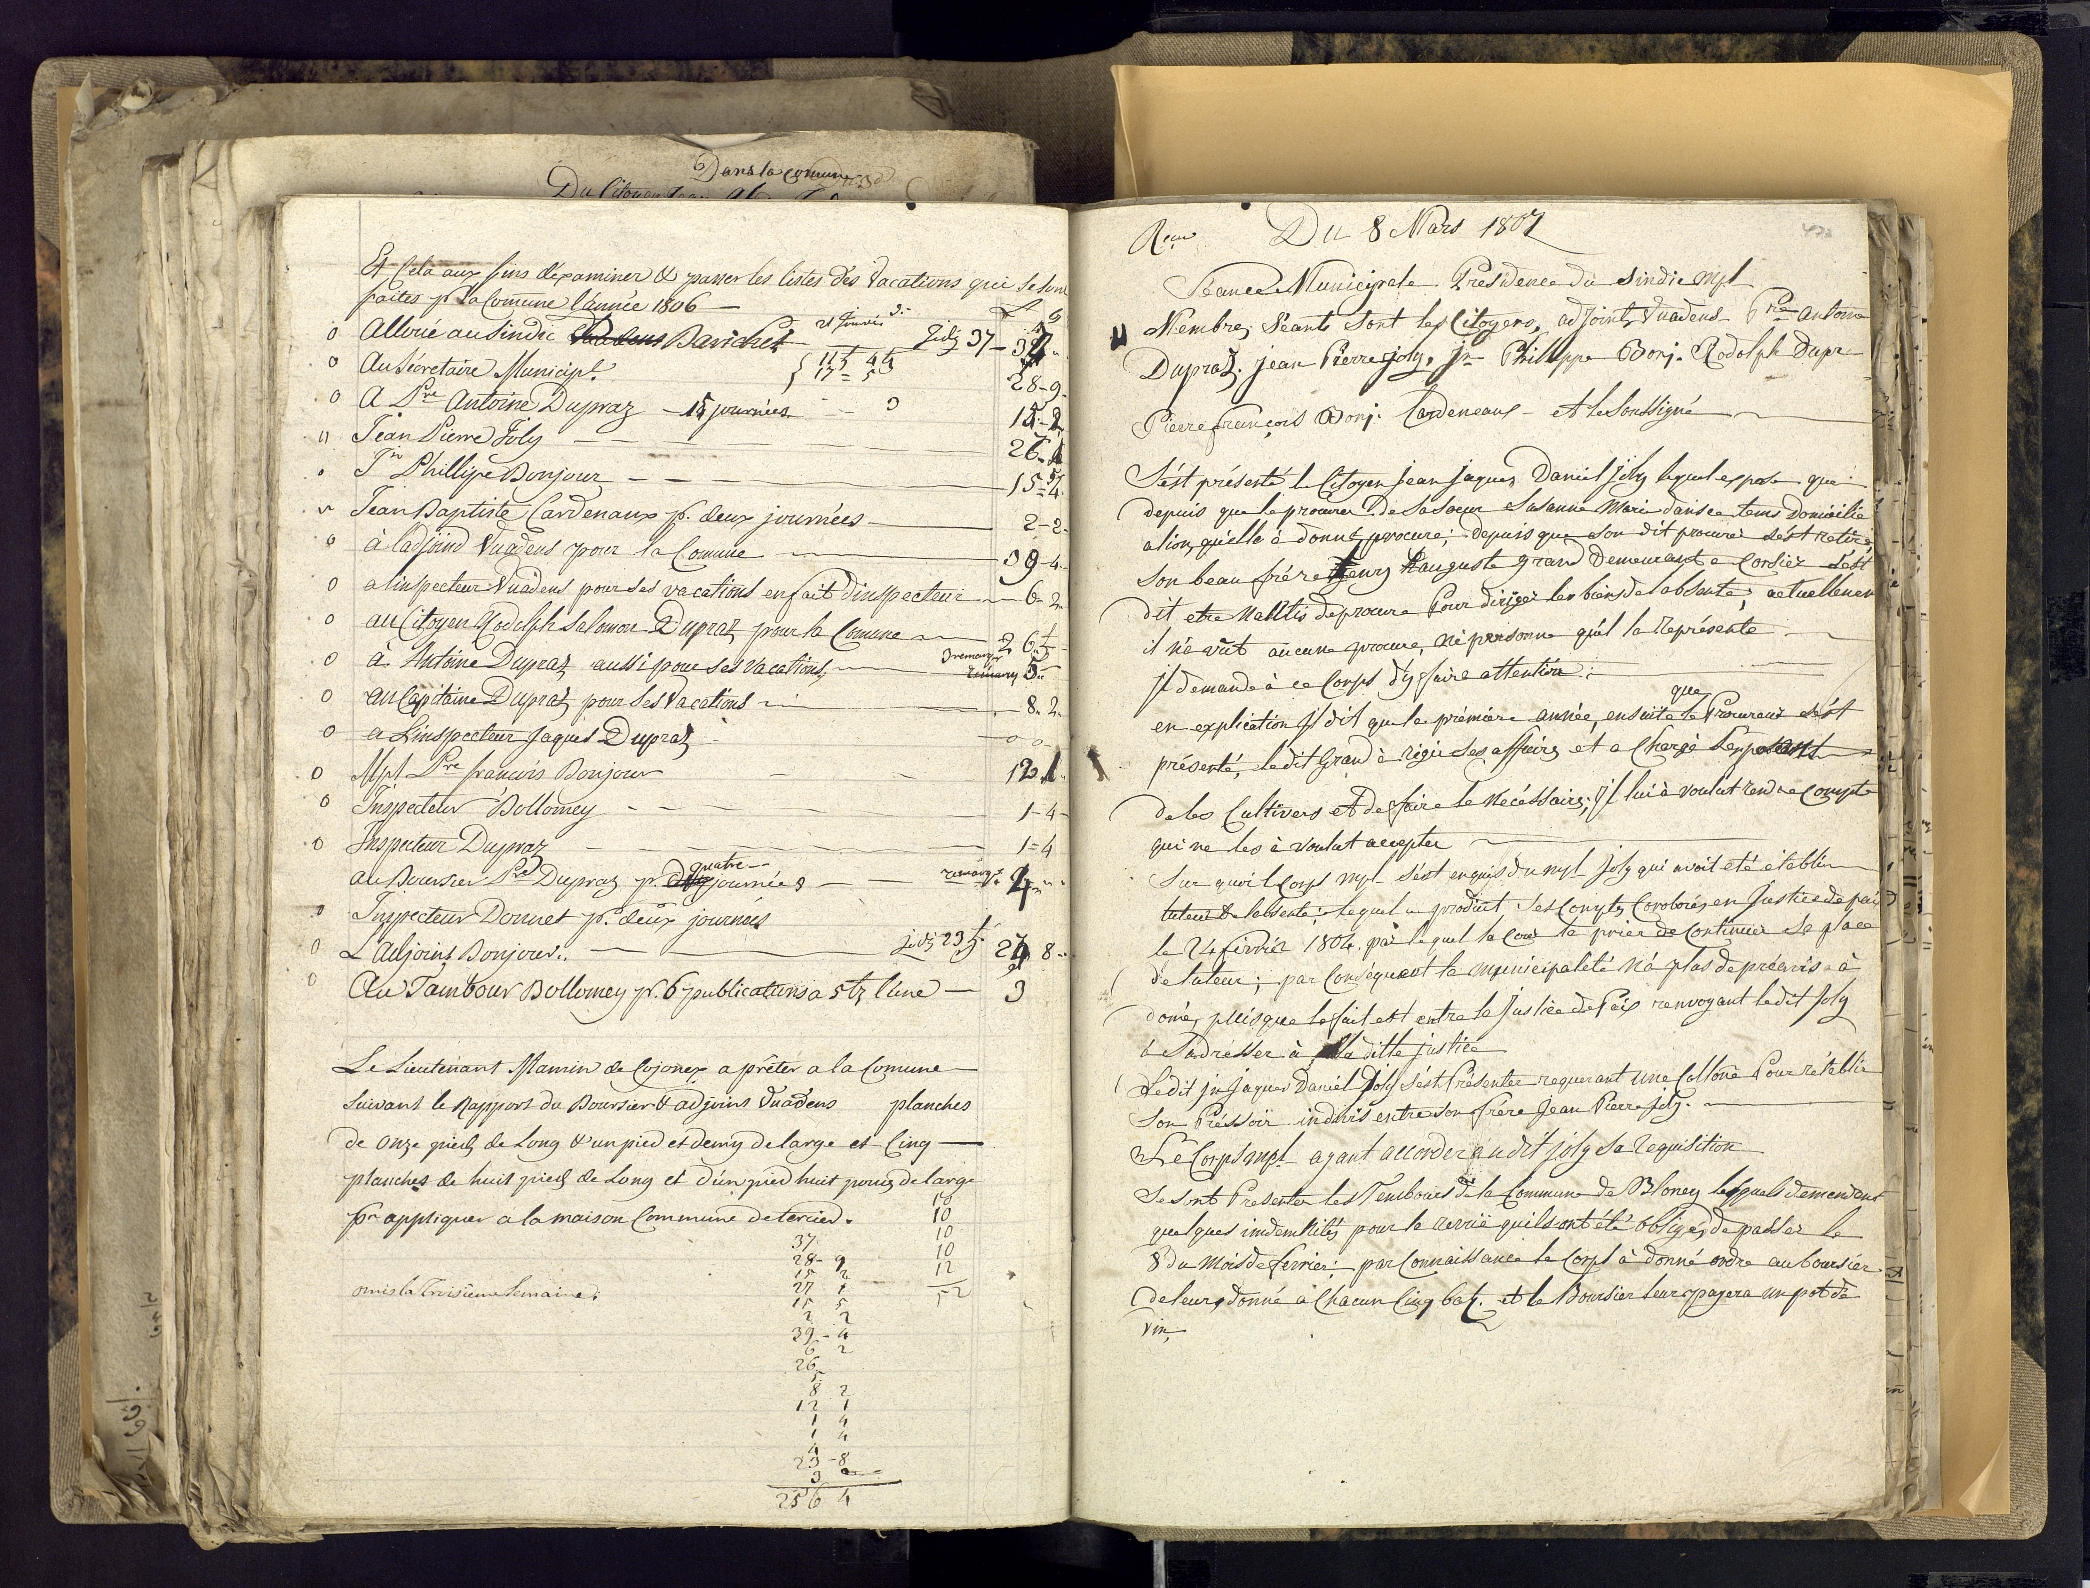 Dans la comune
Du Citoyen
Et Cela aux fins d'éxaminer & passer les listes des Vacations qui se sont
faites pr. la Comune l'année 1806 —
o Alloué au Sindic Bavichet 37 —
o Au Sécretaire Municipl. 28-9
o A Pre Antoine Dupraz — 15 journées
" Jean Pierre Joly
Jn Phillipe Bonjour — 15
Jean Baptiste Cardenaux p. deux journées — 2-2
o à l'adjoind Vuadens pour la Comune — 39-4
o a linspecteur Vuadens pour ses vacations en fait dinspecteur — 6-2
o au Citoyen Rodolph Salomon Dupraz pour la Comune — 26
o à Antoine Dupraz aussi pour ses vacations — 5
o au Capitaine Dupraz pour ses Vacations — 8.2.
o a L'inspecteur Jaques Dupraz — o o
o Mpl Pre francois Bonjour 12 1
o Inspecteur Bollomey 1-4
o Inspecteur Dupraz 1=4
au Boursier Pre Dupraz p. quatre journées — 4
o Inspecteur Donnet pr. deux journées
o L'Adjoint Bonjour 8
o Au Tambour Bollomey pr. 6 publications a 5 bz l'une — 3
Le Lieutenant Mamin de Cojonex a prêter a la Comune
Suivant le Rapport du Boursier & adjoint Vuadens planches
de onze pieds de Long & un pied et demy de large et Cinq —
planches de huit pieds de Long et d'un pied huit pouces de large
pr appliquer a la maison Commune de tercier.
10
10
10
10
12
52
omis la Troisieme Semaine.
37
28-9
15 2
27 1
15 5
2 2
39-4
6 2
26
5
8 2
12 1
1 4
1 4
4
23-8
3
256 4
Du 8 Mars 1807
Séance Municipale Présidence du Sindic mpl
Membres Séants sont les Citoyens, adjoint Vuadens Pre antoine
Dupraz. jean Pierre joly. jn Philippe Bonj. Rodolph Dupra
Pierre françois Bonj. Cardeneaux — et le Soussigné
S'ést présenté le Citoyen jean jaques Daniel joly lequel expose que
depuis que le procureur de Sa Soeur Susanne Marie dans ce tems domicilié
a lion, qu'elle à donné procure; depuis que son dit procureur s'ést retiré,
Son beau frére henry auguste grand Demeurant a Corsier s'ést
dit etre Nantis de procure Pour diriger les biens de l'absente, actuellement
il n'a vüt aucune procure, né personne qu'il la Représente
jl demande à ce Corps d'y faire attention:
en explication jl dit que la prémiére année, ensuite que le Procureur s'ést
présenté, ledit Grand à régir ses affaires et a Chargé l'exposant
de les Cultivers et de faire le Nécéssaire; jl lui à voulut rendre Compte
qui ne les à voulut accepter
Sur quoi l Corps mpl s'ést enquis du mpl joly qui avoit été établi
tuteur de labsente, lequel a produit Ses Comptes Coroborés en Justice de paix
le 24 février 1804. par lequel la Cour la prier de Continuer Sa place
de tuteur; par Conséquent la municipaleté n'à plus de préavis à
doné, puisque le fait est entre la Justice de Paix renvoyant ledit joly
à S'adrésser à la ditte justice
Ledit jn jaques Daniel Joly s'ést Présenter requerant une Collone Pour rétablir
Son Préssoir indivis entre son frere Jean Pierre joly.
Le Corps mpl ayant accorder audit joly Sa requisition
Se sont Presenter les Tembours de la Commune de Bloney lesquels demendant
quelques indemnités pour la revuë quils ont été obligés de passer le
8 du Mois de fevrier: par Connaissance le Corps à donné ordre au boursier
de leurs donné à Chacun Cinq batz. et le Boursier leurs payera un pot de
vin,